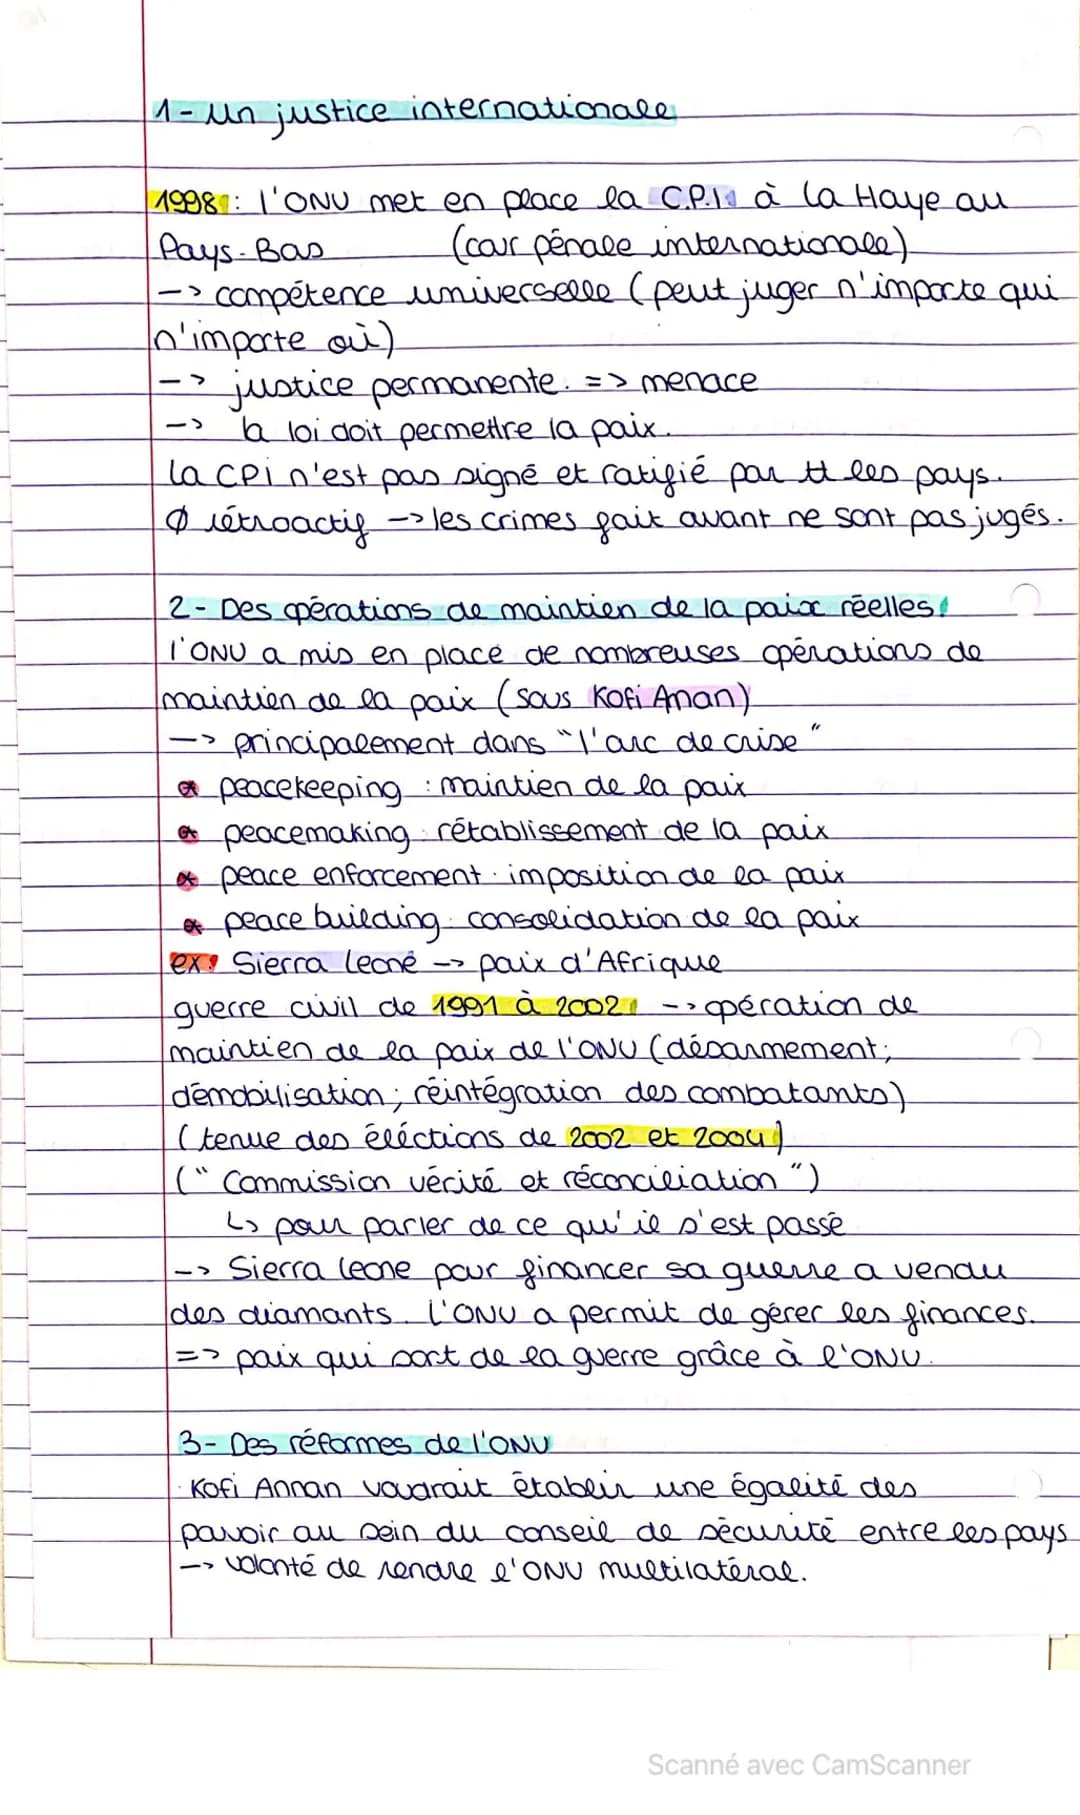 1- Un justice internationale
1998 : l'ONU met en place la C.P.I à la Haye au
Pays-Bas (cour pénale internationale)
-> compétence universelle (peut juger n'importe qui
n'importe où)
-> justice permanente. => menace
-> la loi doit permettre la paix.
la CPI n'est pas signé et ratifié par tt les pays.
Ø rétroactif -> les crimes fait avant ne sont pas jugés.
2- Des opérations de maintien de la paix réelles
l'ONU a mis en place de nombreuses opérations de
maintien de la paix (sous Kofi Anan)
-> principalement dans "l'arc de crise"
* peacekeeping : maintien de la paix
* peacemaking : rétablissement de la paix
* peace enforcement : imposition de la paix
* peace building : consolidation de la paix
ex: Sierra Leoné -> paix d'Afrique
guerre civil de 1991 à 2002 -> opération de
maintien de la paix de l'ONU (désarmement;
démobilisation; réintégration des combatants)
(tenue des éléctions de 2002 et 2004)
("Commission vérité et réconciliation")
↳ pour parler de ce qu'il s'est passé
-> Sierra Leone pour financer sa guerre a vendu
des diamants. L'ONU a permit de gérer les finances.
=> paix qui sort de la guerre grâce à l'ONU.
3- Des réformes de l'ONU
Kofi Annan voudrait établir une égalité des
pouvoir au sein du conseil de sécurité entre les pays
-> volonté de rendre l'ONU multilatéral.
Scanné avec CamScanner